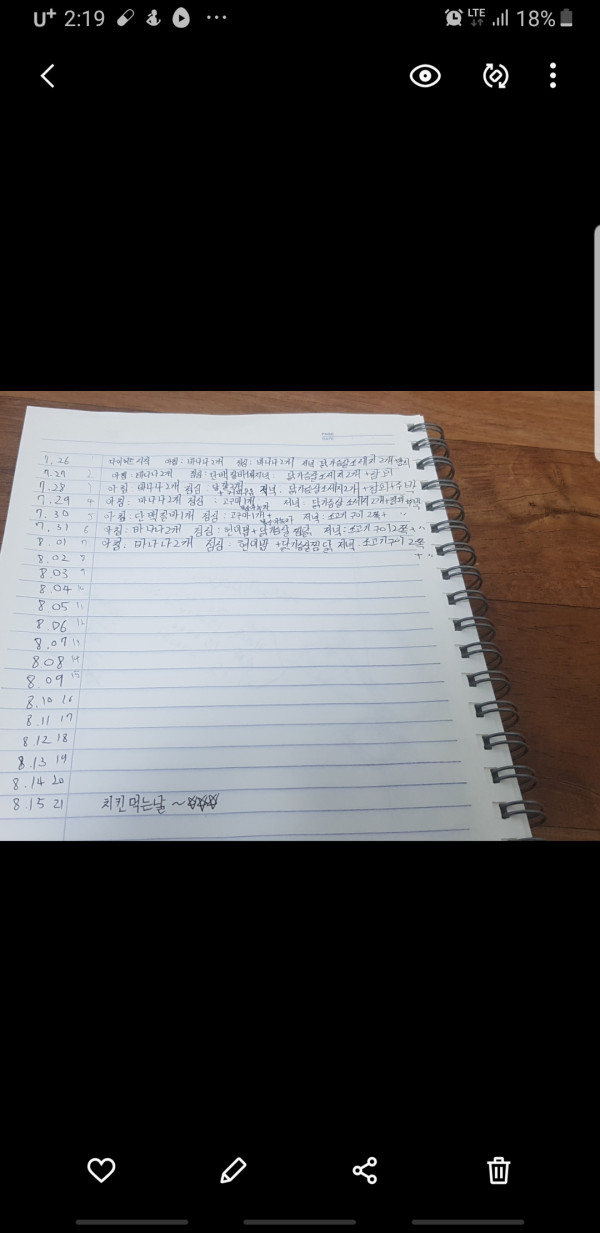 U+ 2:19 ... LTE 18%
7.26 다이어트시작 아침: 바나나2개 점심: 바나나2개 저녁 닭가슴살소세지2개
7.27 2 아침: 바나나2개 점심: 닭가슴살소세지2개+참외
7.28 아침 바나나2개 점심 저녁. 닭가슴살소세지2개+참외+
7.29 4 아침: 바나나2개 점심: 고구마1개 저녁: 닭가슴살소세지2개+
7.30 5 아침: 단백질바1개 점심: 고구마1개+ 저녁: 소고기구이2쪽+ "
7.31 6 아침: 바나나2개 점심: 현미밥+닭가슴살찜닭 저녁: 소고기구이2쪽+ "
8.01 7 아침: 바나나2개 점심: 현미밥+닭가슴살찜닭 저녁: 소고기구이2쪽
+ "
8.02 8
8.03 9
8.04 10
8.05 11
8.06 12
8.07 13
808 14
8.09 15
8.10 16
8.11 17
8.12 18
8.13 19
8.14 20
8.15 21 치킨먹는날~